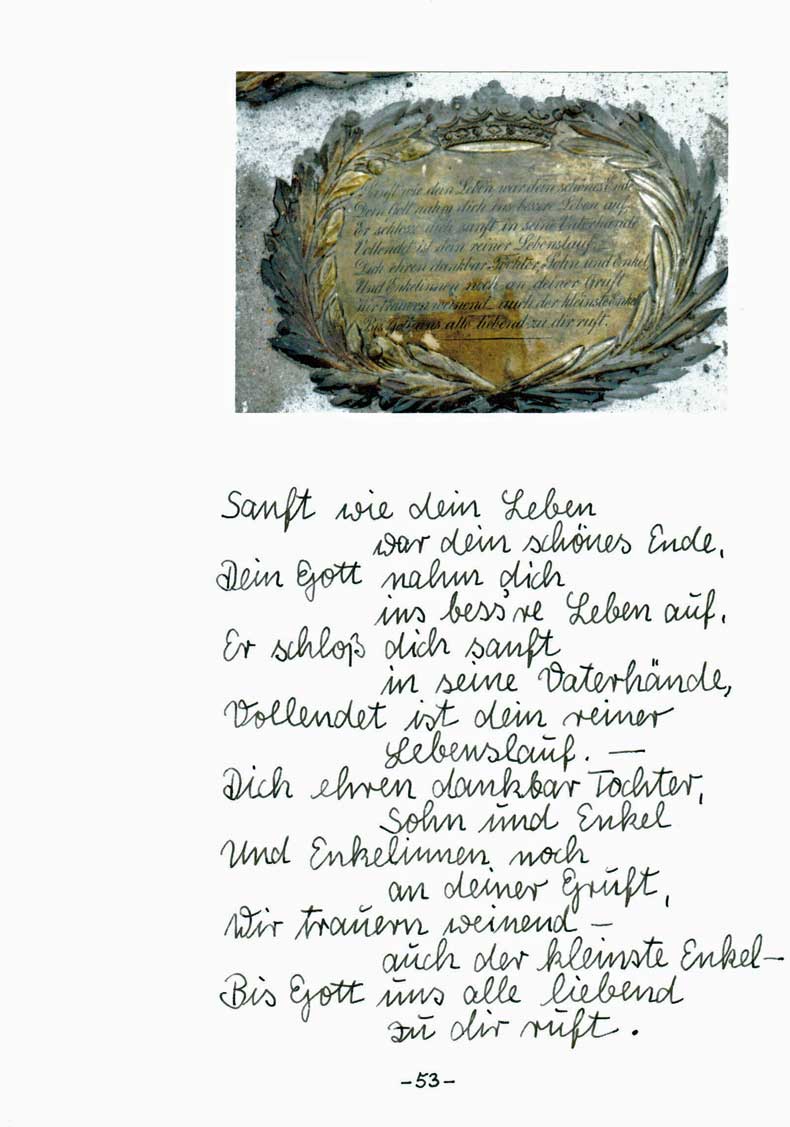 Sanft wie dein Leben war dein schönes Ende
Dein Gott nahm dich ins bessre Leben auf
Er schloss dich sanft in seine Vaterhände
Vollendet ist dein reiner Lebenslauf
Dich ehren dankbar Tochter, Sohn und Enkel
Und Enkelinnen noch an deiner Gruft
Wir trauern weinend auch der kleinste Enkel
Bis Gott uns alle liebend zu dir ruft.
Sanft wie dein Leben
war dein schönes Ende,
Dein Gott nahm dich
ins bess're Leben auf,
Er schloß dich sanft
in seine Vaterhände,
Vollendet ist dein reiner
Lebenslauf. —
Dich ehren dankbar Tochter,
Sohn und Enkel
Und Enkelinnen noch
an deiner Gruft,
Wir trauern weinend —
auch der kleinste Enkel —
Bis Gott uns alle liebend
zu dir ruft.
- 53 -